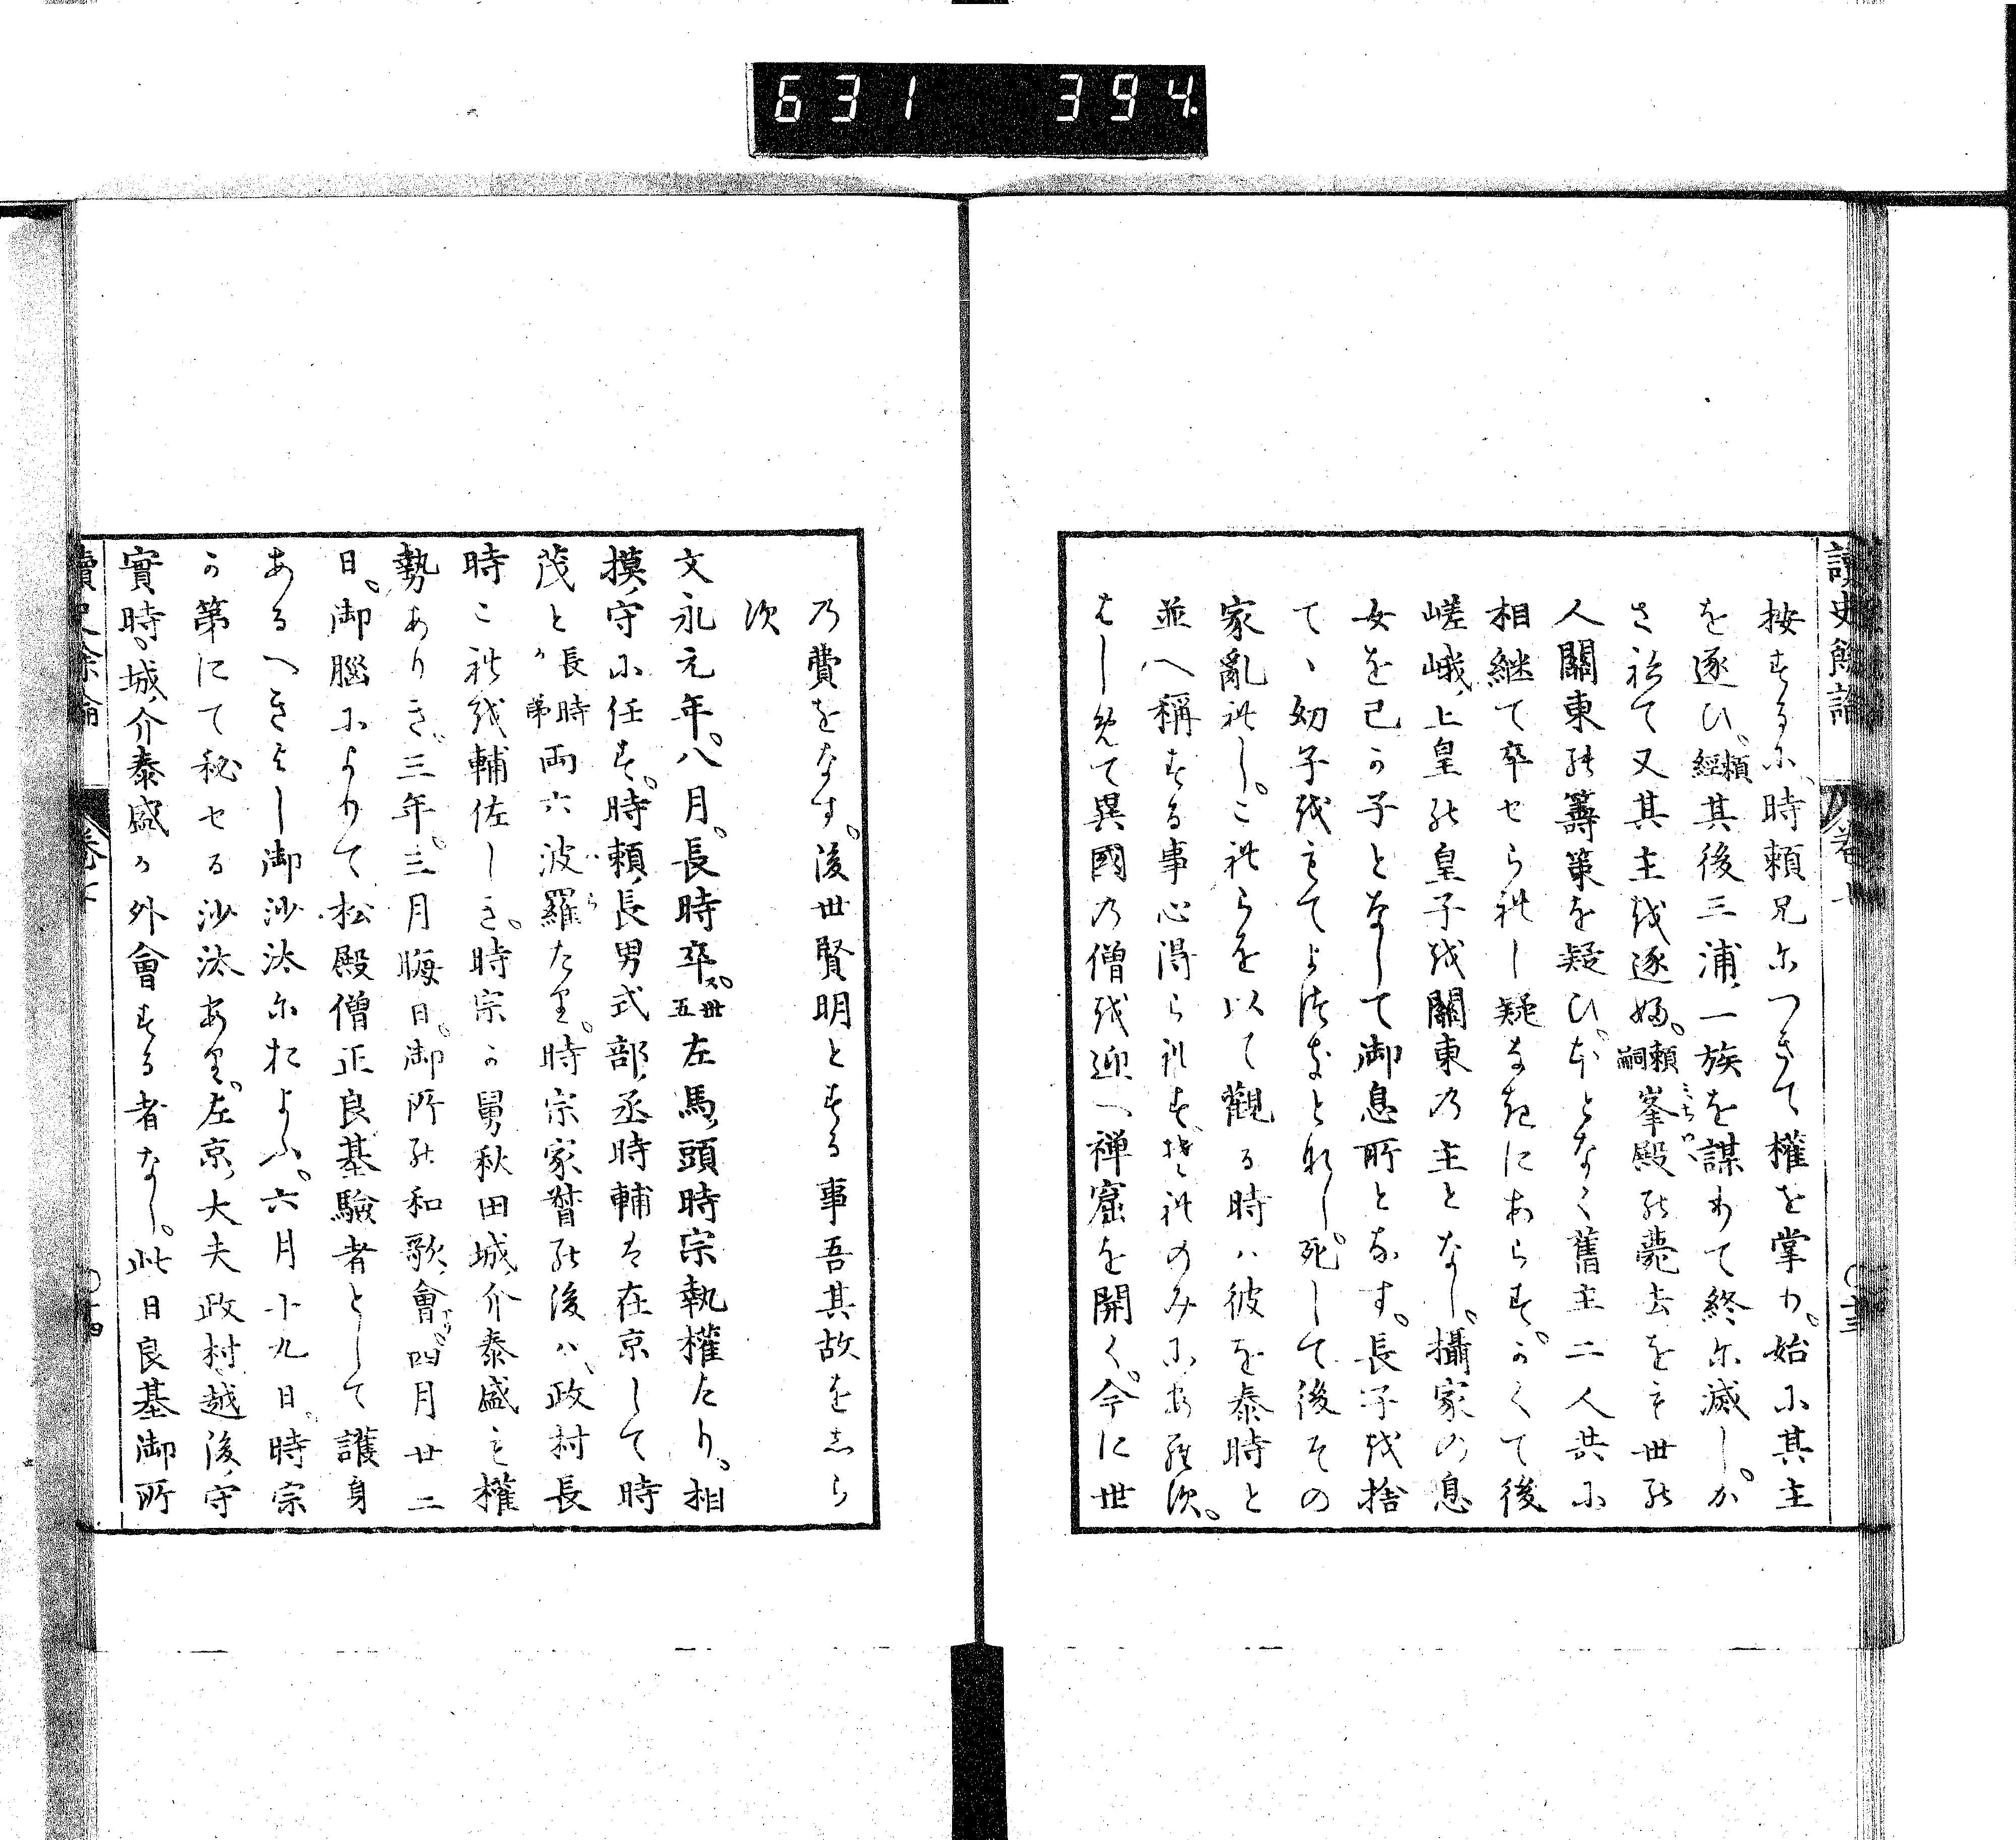 631 394.
讀史餘論 卷七 〇十三
按するに、時頼兄につきて權を掌り。始に其主
を逐ひ、頼經其後三浦、一族を謀りて終に滅し。か
さねて又其主を逐ふ。頼嗣峯殿の薨去をも世の
人關東の籌策を疑ひ。ほとなく舊主二人共に
相継て卒せられし疑なきにあらす。かくて後
嵯峨、上皇の皇子を關東の主となし。攝家の息
女を己か子となして御息所となす。長子を捨
て、幼子をもてよつきとれし。死して後その
家亂れし。これらを以て觀る時ハ彼を泰時と
並へ稱する事心得られすそれのみにあらす。
はしめて異國の僧を迎へ禅窟を開く。今に世
の費をなす。後世賢明とする事吾其故をしら
す
文永元年。八月。長時卒ス。卅五左馬、頭時宗執權たり。相
摸、守に任す。時頼、長男式部、丞時輔は在京して時
茂と長時か弟両六波羅たり。時宗家督の後ハ、政村長
時これを輔佐しき。時宗か舅秋田城、介泰盛も權
勢ありき。三年。三月晦日。御所の和歌、會アリ。四月廿二
日。御腦によりて松殿僧正良基驗者として護身
あるへきよし御沙汰におよふ。六月十九日。時宗
か第にて秘せる沙汰あり。左京、大夫政村、越後、守
實時、城、介泰盛か外會する者なし。此日良基御所
讀史餘論 卷七 〇十四